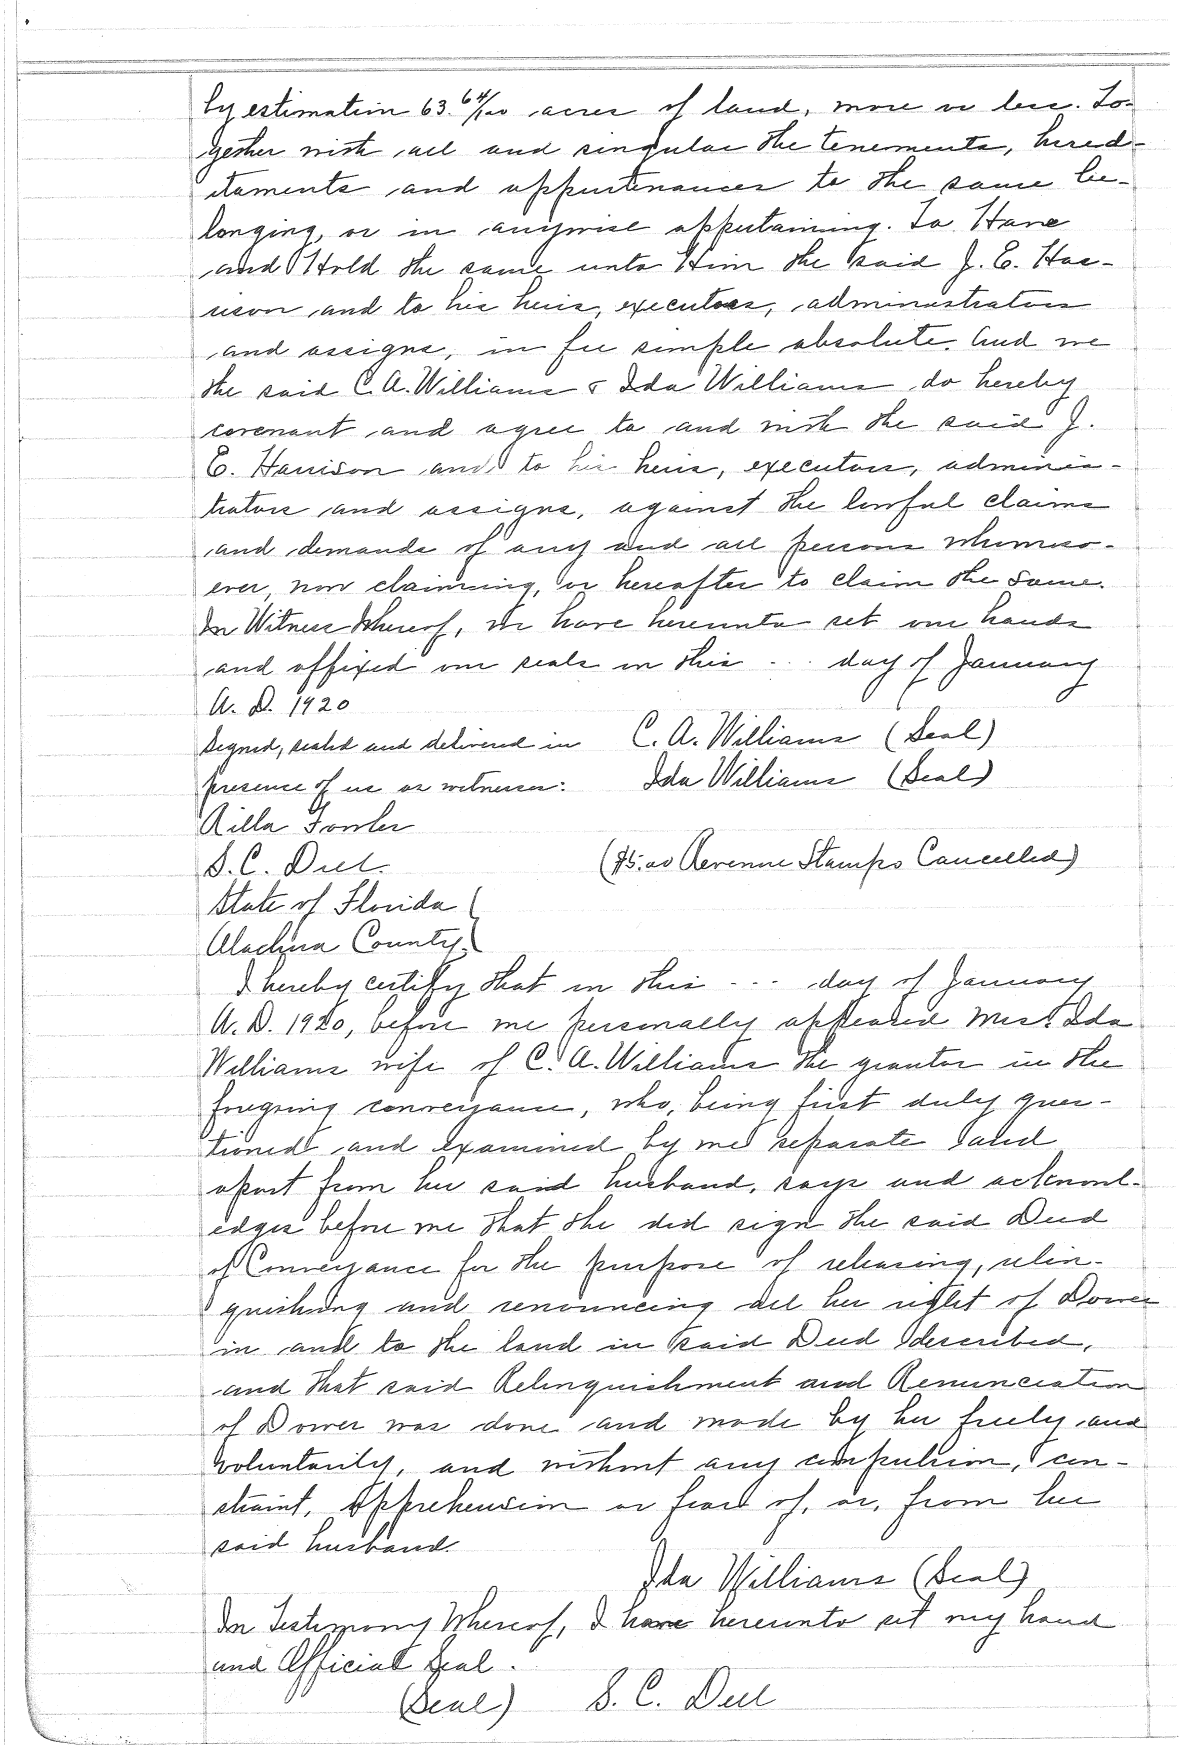 by estimation 63.64/100 acres of land, more or less. To-
gether with all and singular the tenements, hered-
itaments and appurtenances to the same be-
longing, or in anywise appertaining. To Have
and Hold the same unto Him the said J. E. Har-
rison and to his heirs, executors, administrators
and assigns, in fee simple absolute. And we
the said C. A. Williams & Ida Williams do hereby
covenant and agree to and with the said J.
E. Harrison and to his heirs, executors, adminis-
trators and assigns, against the lawful claims
and demands of any and all persons whomso-
ever, now claiming, or hereafter to claim the same.
In Witness Whereof, we have hereunto set our hands
and affixed our seals on this ... day of January
A. D. 1920
Signed, sealed and delivered in C. A. Williams (Seal)
presence of us as witnesses: Ida Williams (Seal)
Rilla Fowler
S. C. Dell ($5.00 Revenue Stamps Cancelled)
State of Florida (
Alachua County. (
I hereby certify that on this ... day of January
A. D. 1920, before me personally appeared Mrs. Ida
Williams wife of C. A. Williams the grantor in the
foregoing conveyance, who, being first duly ques-
tioned and examined by me separate and
apart from her said husband, says and acknowl-
edges before me that she did sign the said Deed
of Conveyance for the purpose of releasing, relin-
quishing and renouncing all her right of Dower
in and to the land in said Deed described,
and that said Relinquishment and Renunciation
of Dower was done and made by her freely and
voluntarily, and without any compulsion, con-
straint, apprehension or fear of, or, from her
said husband.
Ida Williams (Seal)
In Testimony Whereof, I have hereunto set my hand
and Official Seal.
(Seal) S. C. Dell